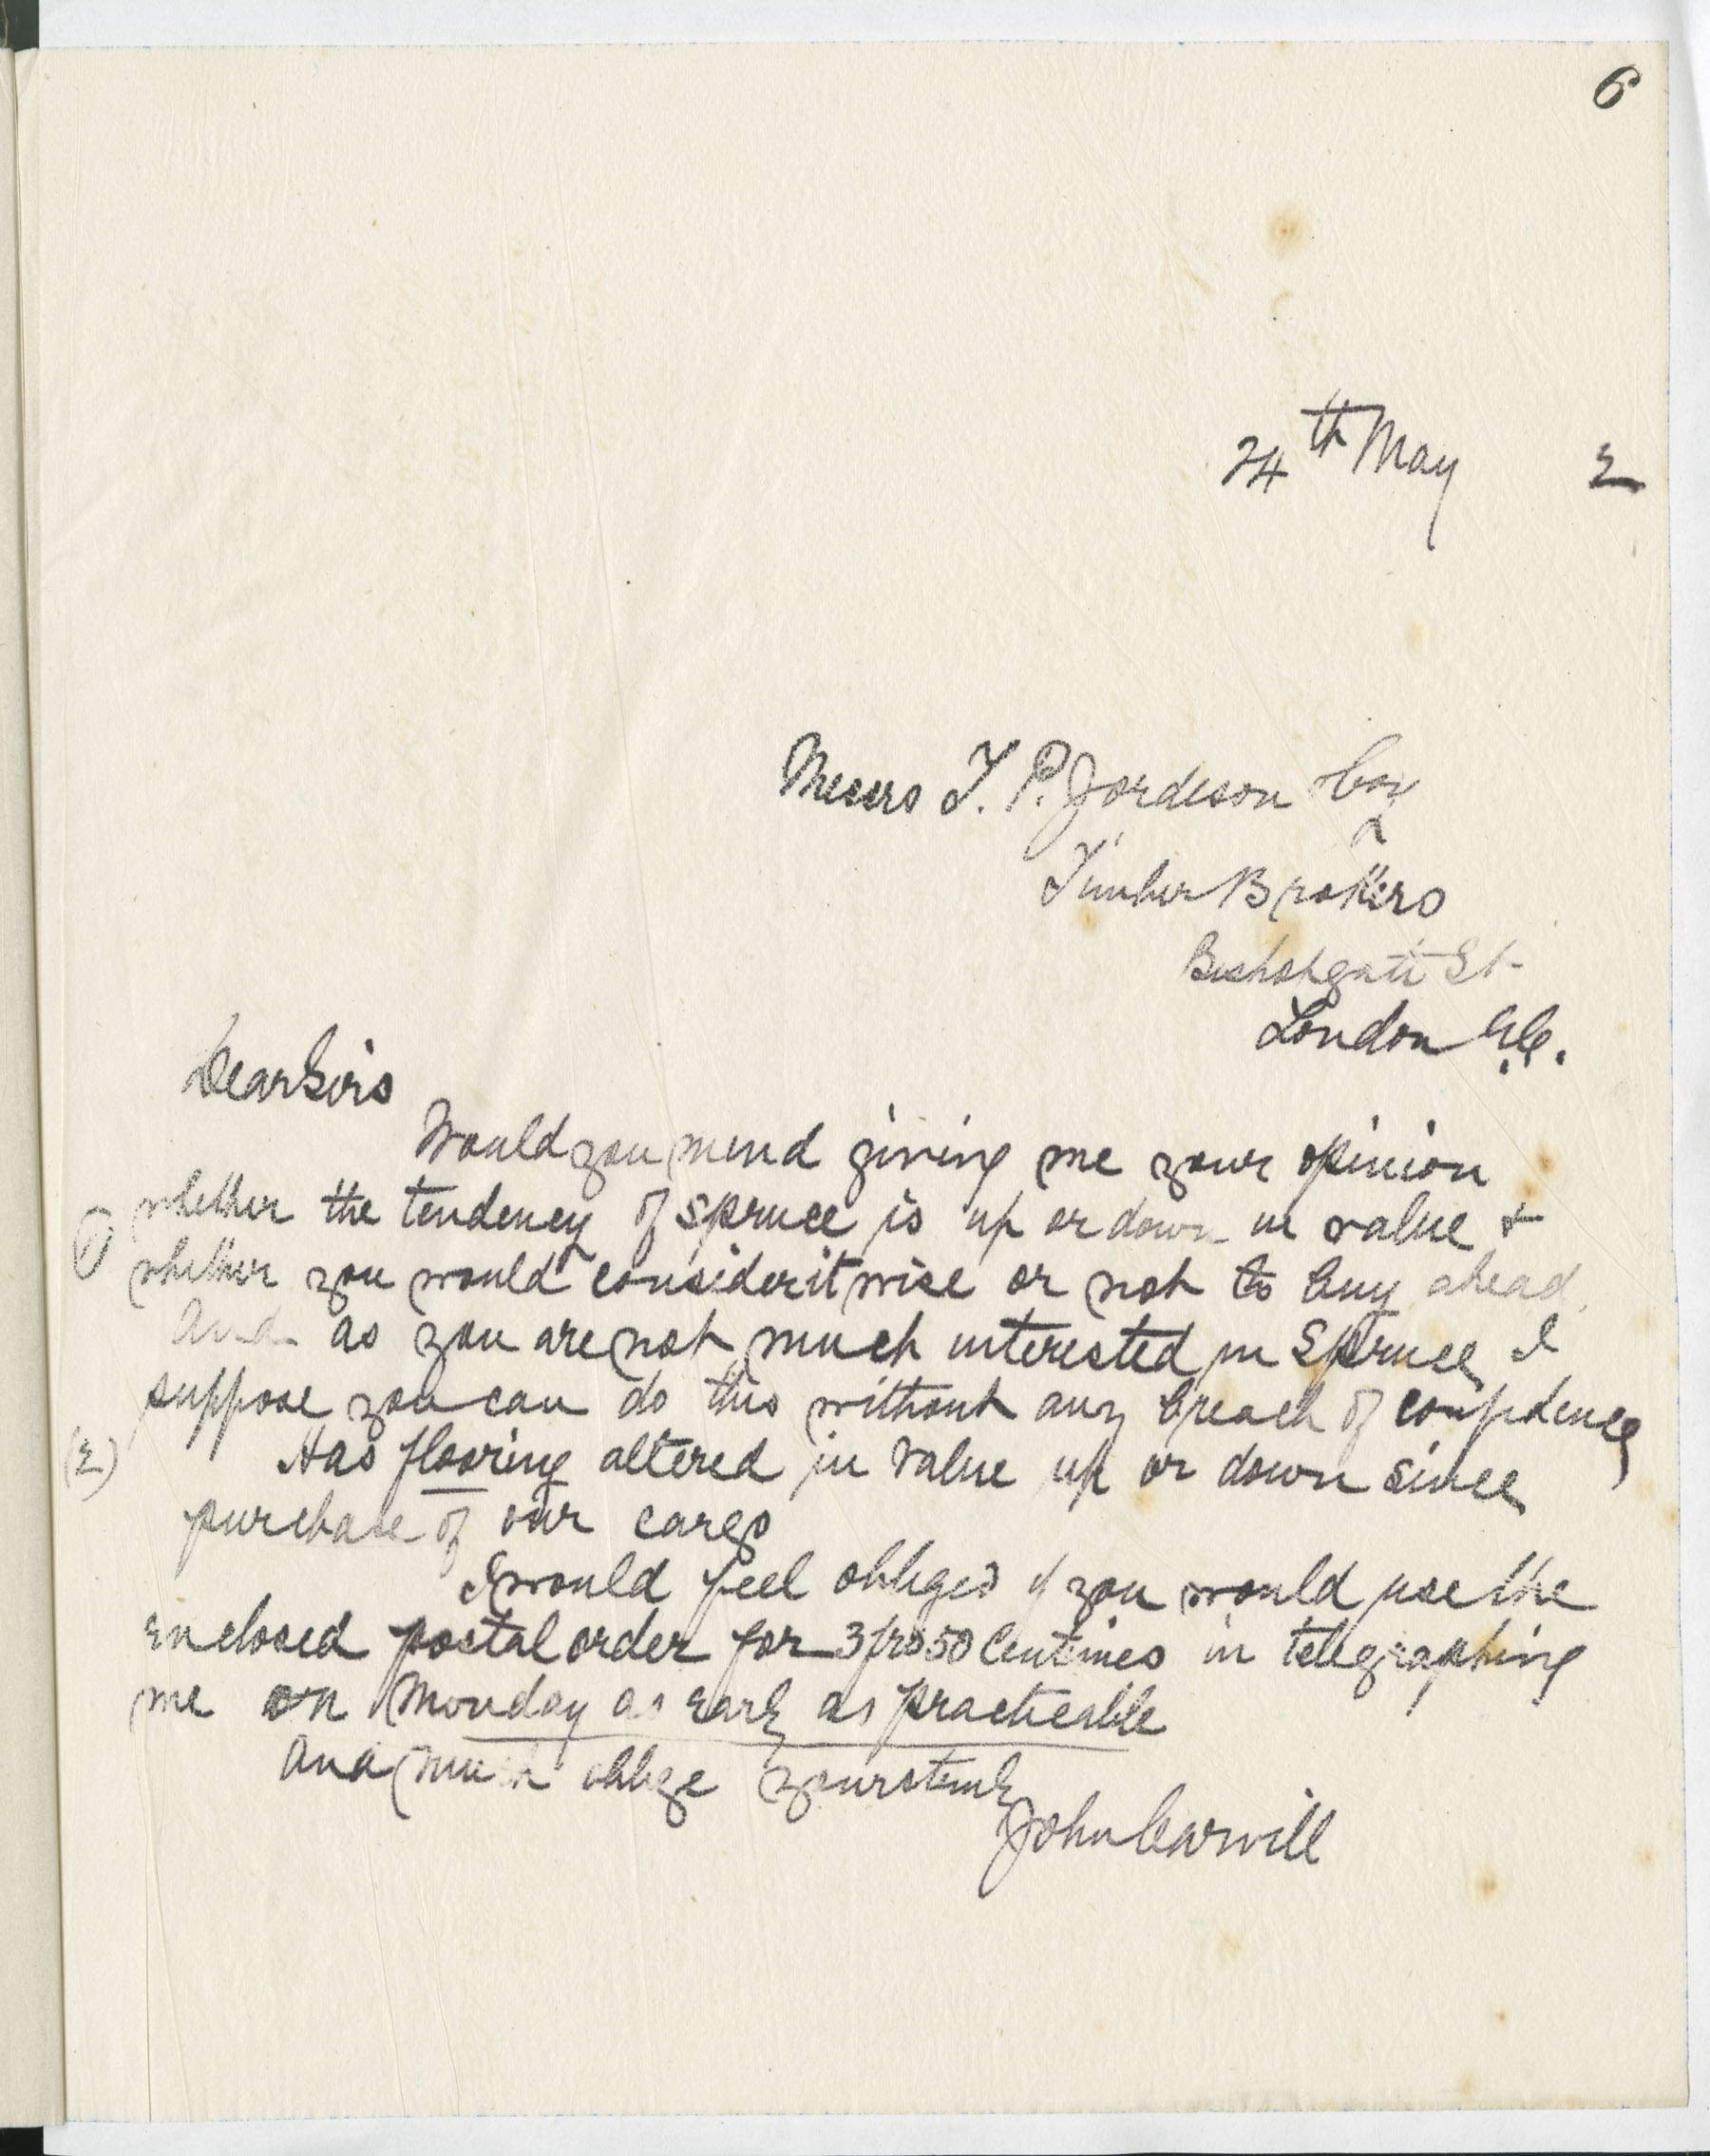 6
24th May 2
Messrs T. P. Jordeson Coy
Timber Brokers
Bishopgate St-
London E.C.
Dear Sirs
Would you mind giving me your opinion
(1) whether the tendency of spruce is up or down in value &
whether you would consider it wise or not to buy ahead.
And as you are not much interested in Spruce, I
suppose you can do this without any breach of confidence,
(2) Has flooring altered in value up or down since
purchase of our cargo
I would feel obliged if you would use the
enclosed postal order for 3frs50 Centimes in telegraphing
me on Monday as early as practicable
And much oblige yours truly
John Carvill